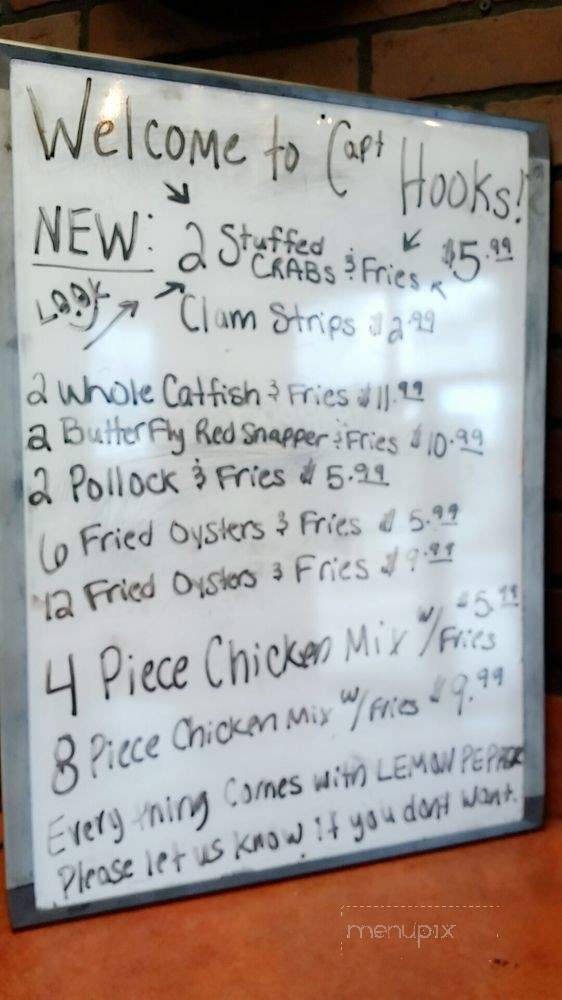 Welcome to "Capt Hooks!"
NEW: 2 Stuffed CRABS & Fries $5.99
LOOK Clam Strips $2.99
2 Whole Catfish & Fries $11.99
2 Butterfly Red Snapper & Fries $10.99
2 Pollock & Fries $5.99
6 Fried Oysters & Fries $5.99
12 Fried Oysters & Fries $9.99
4 Piece Chicken Mix w/Fries $5.99
8 Piece Chicken Mix w/Fries $9.99
Everything Comes with LEMON PEPPER
Please let us know if you dont want.
menupix